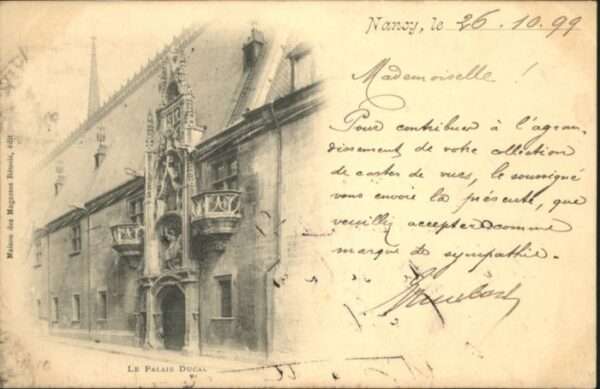 Nancy, le 26.10.99
Mademoiselle!
Pour contribuer à l'agran-
dissement de votre collection
de cartes de vues, le soussigné
vous envoie la présente, que
veuillez accepter comme
marque de sympathie.
Maison des Magasins Réunis, édit
LE PALAIS DUCAL